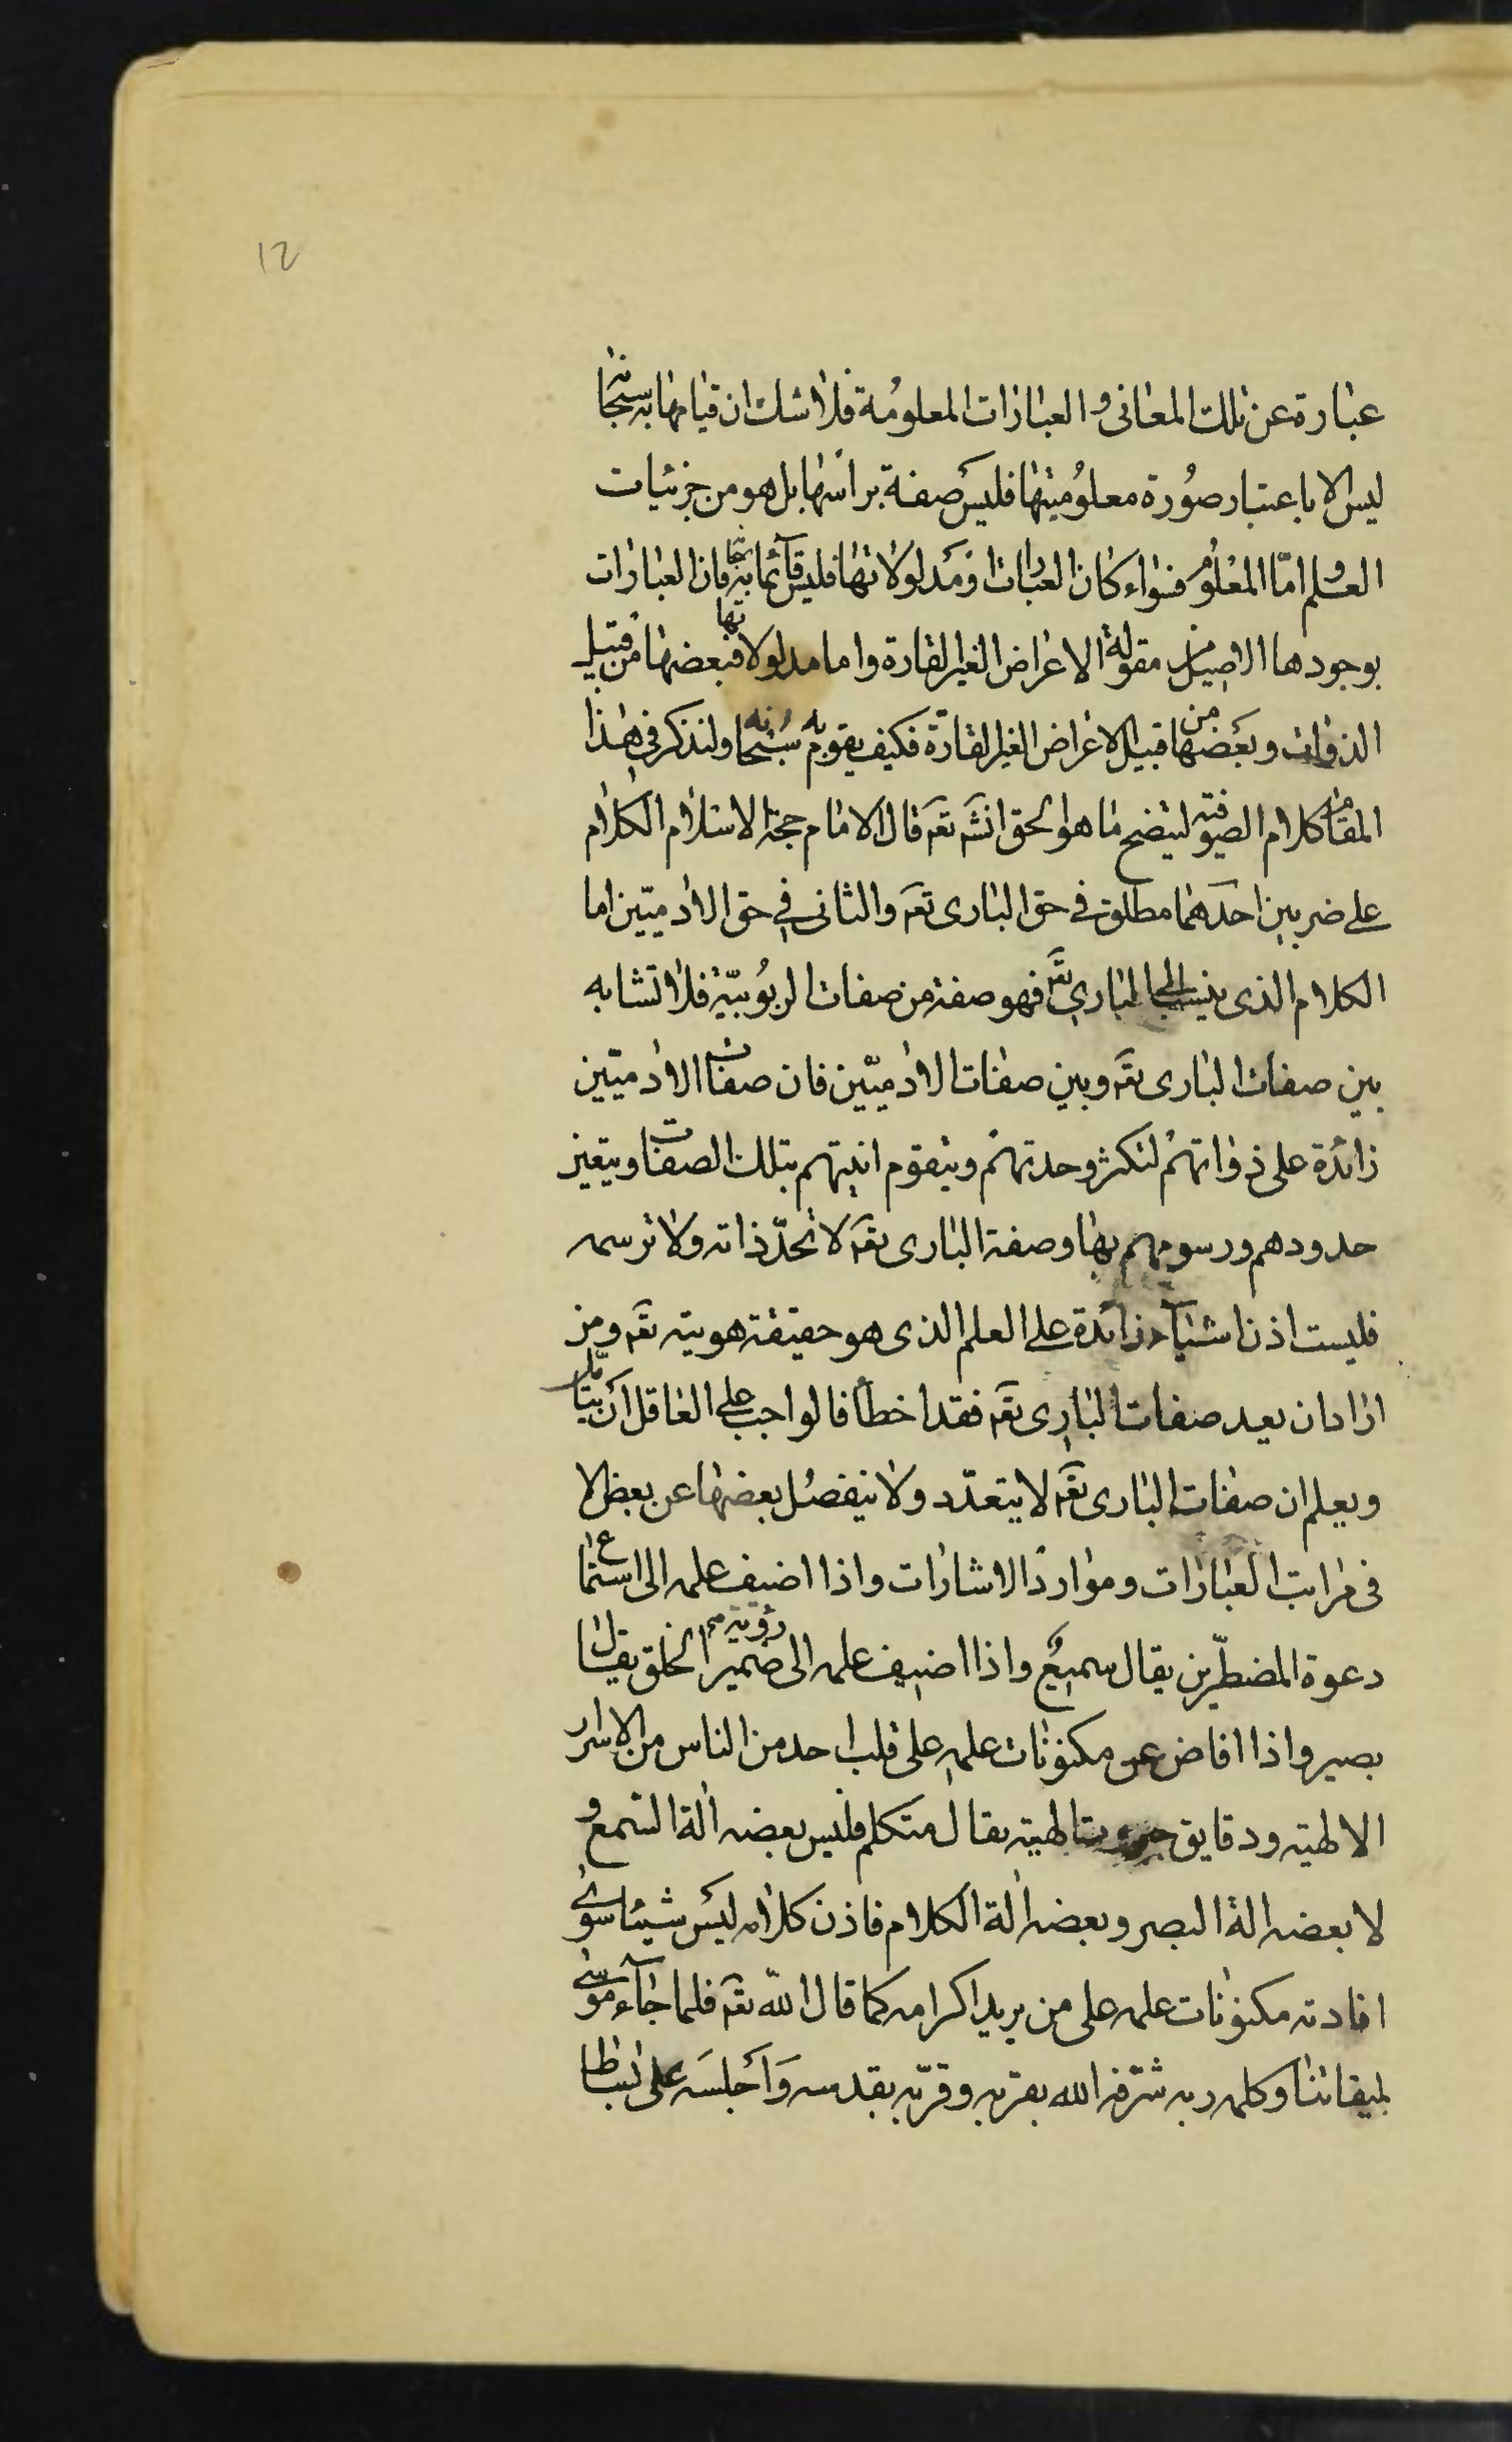 12
عبارة عن تلك المعانى و العبارات المعلومة فلا شك ان قيامها به سبحانه
ليس الا باعتبار صورة معلوميتها فليس صفة برأسها بل هو من جزئيات
العلم و اما المعلوم فسواء كان العبارات او مدلولاتها فليس قائما به سبحانه فان العبارات
بوجودها الاصيل من مقولة الاعراض الغير القارة واما مدلولاتها فبعضها من قبيل
الذوات وبعضها من قبيل الاعراض الغير القارة فكيف يقوم به سبحانه ولنذكر فى هذا
المقام كلام الصوفية ليتضح ما هو الحق انشه تعه قال الامام حجة الاسلام الكلام
على ضربين احدهما مطلق فى حق البارى تعه والثانى فى حق الادميين اما
الكلام الذى ينسب الى البارى تعه فهو صفة من صفات الربوبية فلا تشابه
بين صفات البارى تعه وبين صفات الادميين فان صفات الادميين
زائدة على ذواتهم لتكثر وحدتهم ويتقوم انيتهم بتلك الصفات ويتعين
حدودهم ورسومهم بها وصفة البارى تعه لا تحد ذاته ولا ترسمه
فليست اذن اشياء زائدة على العلم الذى هو حقيقة هويته تعه ومن
اراد ان يعد صفات البارى تعه فقد اخطأ فالواجب على العاقل ان يتامل
ويعلم ان صفات البارى تعه لا يتعدد ولا ينفصل بعضها عن بعض الا
فى مراتب العبارات وموارد الاشارات واذا اضيف علمه الى استماع
دعوة المضطرين يقال سميع و واذا اضيف علمه الى رؤية ضمير الخلق يقال
بصير واذا افاض من مكنونات علمه على قلب احد من الناس من الاسرار
الالهية ودقايق الهية يقال متكلم فليس بعضه آلة السمع و
لا بعضه الة البصر وبعضه آلة الكلام فاذن كلامه ليس شيئا سوى
افادته مكنونات علمه على من يريد اكرامه كما قال الله تعه فلما جاء موسى
لميقاتنا وكلمه ربه شرفه الله بقربه وقربه بقدسه وأجلسه على بساط